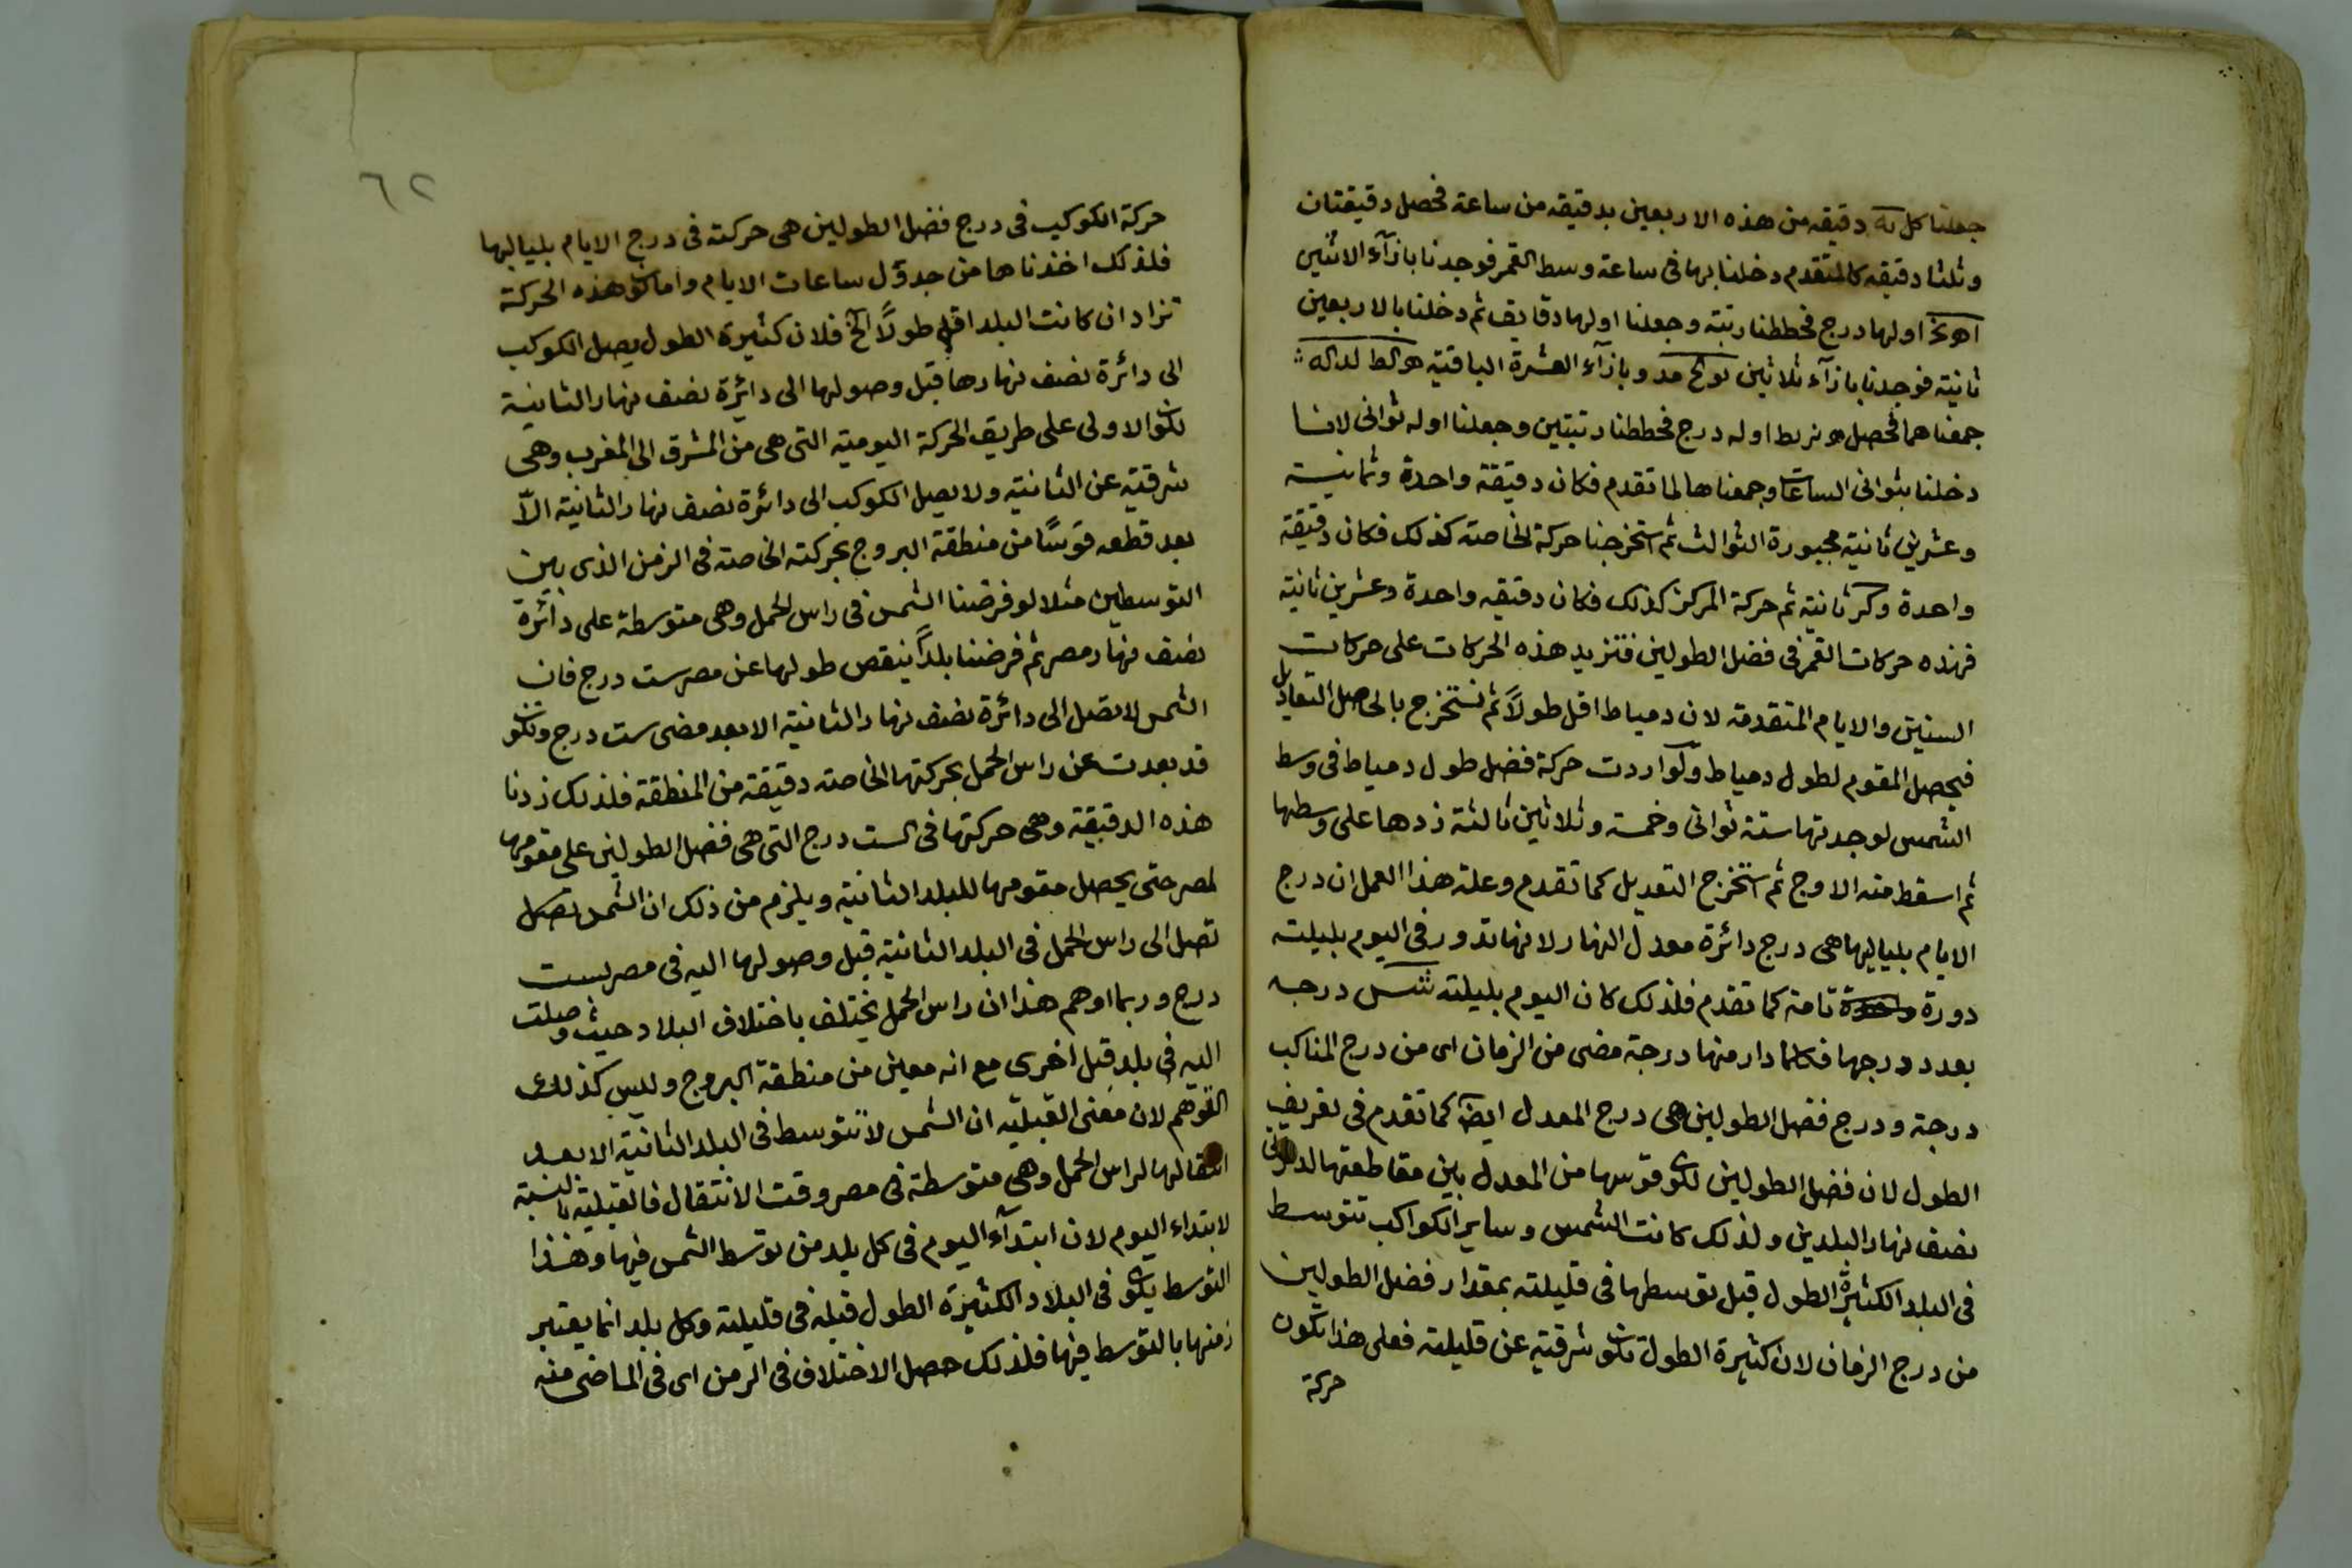 جعلنا كل يه دقيقه من هذه الاربعين بدقيقه من ساعة فحصل دقيقتان
وثلثا دقيقه كالمتقدم دخلنا بها فى ساعة وسط القمر فوجدنا بازآء الاثنين
اولها درج فحططنا رتبته وجعلنا اولها دقايق ثم دخلنا بالاربعين
ثانية فوجدنا بازآء ثلاثين مد وبازآء العشرة الباقية
جمعناهما فحصل اوله درج فحططنا رتبتين وجعلنا اوله ثوانى لاننا
دخلنا بثوانى الساعات وجمعناها لما تقدم فكان دقيقة واحدة وثمانية
وعشرين ثانية مجبورة الثوالث ثم استخرجنا حركة الخاصة كذلك فكان دقيقة
واحدة وكر ثانية ثم حركة المركز كذلك فكان دقيقه واحدة وعشرين ثانية
فهذه حركات القمر فى فضل الطولين فتزيد هذه الحركات على حركات
السنين والايام المتقدمة لان دمياط اقل طولاً ثم نستخرج بالحاصل التعاديل
فيحصل المقوم لطول دمياط ولو اردت حركة فضل طول دمياط فى وسط
الشمس لوجدتها ستة ثوانى وخمسة وثلاثين ثالثة زدها على وسطها
ثم اسقط منه الاوج ثم استخرج التعديل كما تقدم وعلة هذا العمل ان درج
الايام بلياليها هى درج دائرة معدل النهار لانها تدور فى اليوم بليلته
دورة واحدة تامة كما تقدم فلذلك كان اليوم بليلته شس درجه
بعدد درجها فكلما دار منها درجة مضى من الزمان اى من درج المناكب
درجة ودرج فضل الطولين هى درج المعدل ايضا كما تقدم فى تعريف
الطول لان فضل الطولين قوسها من المعدل بين مقاطعتها لدائرتى
نصف نهار البلدين ولذلك كانت الشمس وساير الكواكب تتوسط
فى البلد الكثيرة الطول قبل توسطها فى قليلته بمقدار فضل الطولين
من درج الزمان لان كثيرة الطول تكون شرقية عن قليلته فعلى هذا تكون
حركة
٦٢
حركة الكوكب فى درج فضل الطولين هى حركته فى درج الايام بلياليها
فلذلك اخذناها من جدول ساعات الايام واما كون هذه الحركة
تزاد ان كانت البلد اقل طولاً الخ فلان كثيرة الطول يصل الكوكب
الى دائرة نصف نهارها قبل وصولها الى دائرة نصف نهار الثانية
لكون الاولى على طريق الحركة اليومية التى هى من المشرق الى المغرب وهى
شرقية عن الثانية ولا يصل الكوكب الى دائرة نصف نهار الثانية الاّ
بعد قطعه قوسًا من منطقة البروج بحركته الخاصة فى الزمن الذى بين
التوسطين مثلا لو فرضنا الشمس فى راس الحمل وهى متوسطة على دائرة
نصف نهار مصر ثم فرضنا بلداً ينقص طولها عن مصر ست درج فان
الشمس لا تصل الى دائرة نصف نهار الثانية الا بعد مضى ست درج وتكون
قد بعدت عن راس الحمل بحركتها الخاصة دقيقة من المنطقة فلذلك زدنا
هذه الدقيقة وهى حركتها فى الست درج التى هى فضل الطولين على مقومها
لمصر حتى يحصل مقومها للبلد الثانية ويلزم من ذلك ان الشمس تصل
تصل الى راس الحمل فى البلد الثانية قبل وصولها اليه فى مصر بست
درج وربما اوهم هذا ان راس الحمل يختلف باختلاف البلاد حيث وصلت
اليه فى بلد قبل اخرى مع انه معين من منطقة البروج وليس كذلك
التوهم لان معنى القبلية ان الشمس لا تتوسط فى البلد الثانية الا بعد
انتقالها لراس الحمل وهى متوسطة فى مصر وقت الانتقال فالقبلية بالنسبة
لابتداء اليوم لان ابتدآء اليوم فى كل بلد من توسط الشمس فيها وهذا
التوسط يكون فى البلاد الكثيرة الطول قبله فى قليلته وكل بلد انما يعتبر
زمنها بالتوسط فيها فلذلك حصل الاختلاف فى الزمن اى فى الماضى منه